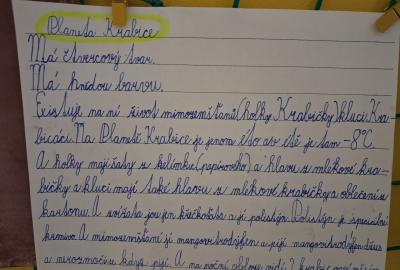 Planeta Krabice
Má čtvercový tvar.
Má hnědou barvu.
Existuje na ní život mimozemšťanů(holky Krabičky)kluci Kra-
bičáci. Na Planetě Krabice je jenom léto ale v létě je tam -8°C.
A holky mají šaty z kelímku(papírového) a hlavu z mlékové kra-
bičky a kluci mají také hlavu z mlékové krabičky a oblečení z
kartonu. A zvířata jsou jen křečkožata a jí polystyn. Polystyn je speciální
krmivo. A mimozemšťané jí mangovitrodýjfen a pijí mangovitrodýjfen džus
a mrozmočin když pijí. A na noční obloze vidí 2 krabicové